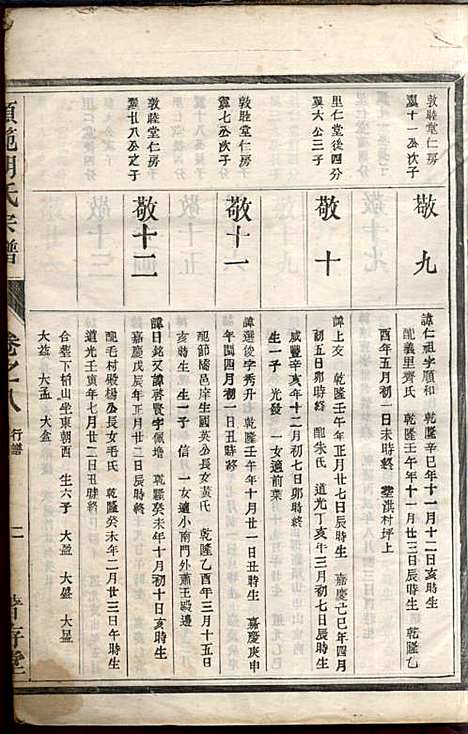 敦睦堂仁房
翼十一公次子
敬九
諱仁祖字順和 乾隆辛巳年十一月十二日亥時生
配義里齊氏 乾隆壬午年十一月廿三日辰時生 乾隆乙
酉年五月初一日未時終 塟淇村坪上
里仁堂後四分
翼大公三子
敬十
諱上友 乾隆壬午年正月廿七日辰時生 嘉慶己巳年四月
初五日卯時終 配朱氏 道光丁亥年初三日初七日辰時生
咸豐辛亥年十二月初七日卯時終
生一子 光發 一女適前葉
敦睦堂仁房
翼七公次子
敬十一
諱選後字秀升 乾隆壬午年十月廿一日丑時生 嘉慶庚申
年閏四月初一日丑時終
配節橋邑庠生國英公長女黃氏 乾隆乙酉年三月十五日
亥時生 生一子 信 一女適小南門外蕭王殿邊
敦睦堂仁房
翼廿八公之子
敬十二
諱日銘又諱啓賢字佩瑲 乾隆癸未年十月初十日亥時生
嘉慶戊辰年正月廿二日辰時終
配毛村殿楊公長女毛氏 乾隆癸未年二月廿三日午時生
道光壬寅年七月廿二日丑時終
合塟下柏山坐東朝西 生六子 大盈 大盛 大显
大益 大孟 大盒
須範胡氏宗譜
卷之八 行譜
二